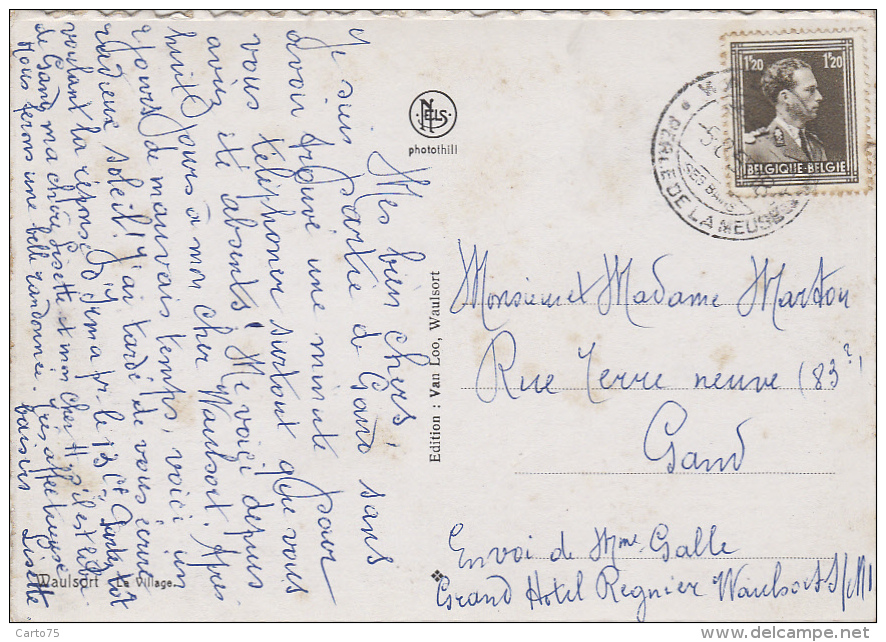 Mes bien chers,
Je suis partie de Gand sans
avoir trouvé une minute pour
vous téléphoner surtout que vous
aviez été absents! Me voici depuis
huit jours à mon cher Waulsort. Après
jours de mauvais temps, voici un
radieux soleil! J'ai tardé de vous écrire
voulant la réponse d'Irma pr. le 13 ct
de Gand, ma chère Gisette et mon cher H s'il est libre
Nous ferons une belle randonnée. Très affectueuse
baisers Lisette
Waulsort Le Village
NELS
photothill
Edition : Van Loo, Waulsort
1F20 1F20
BELGIQUE·BELGIE
PERLE DE LA MEUSE
DES BAINS
Monsieur et Madame Marton
Rue Terre neuve (83?)
Gand
Envoi de Mme Galle
Grand Hotel Regnier Waulsort S/M
Carto75
www.delcampe.net